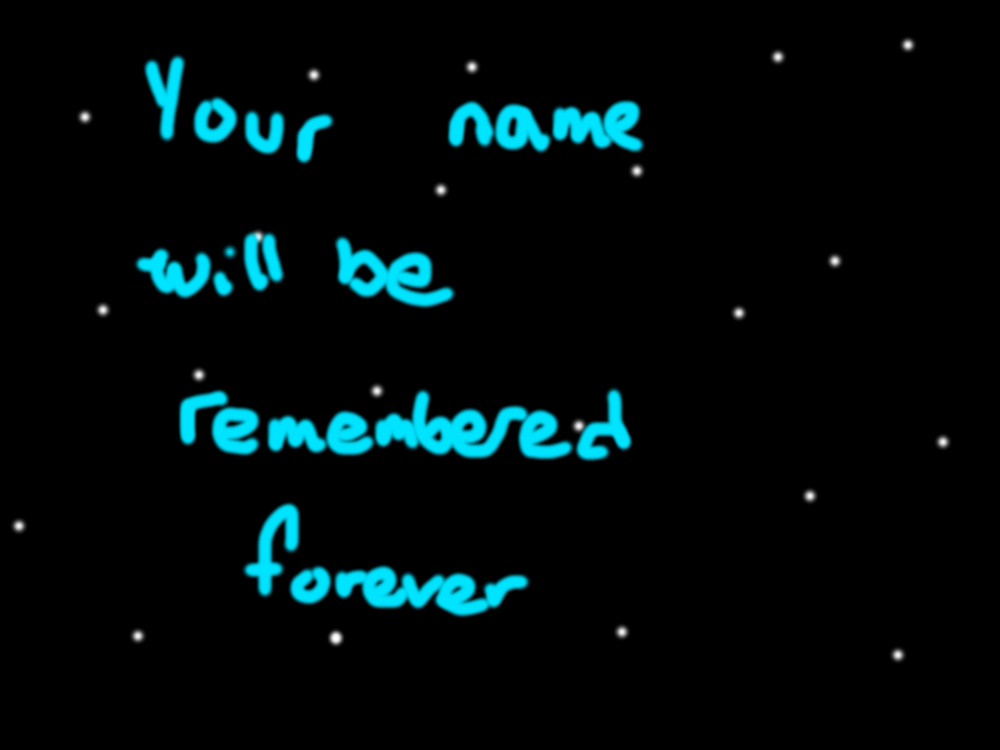 Your name
will be
remembered
forever